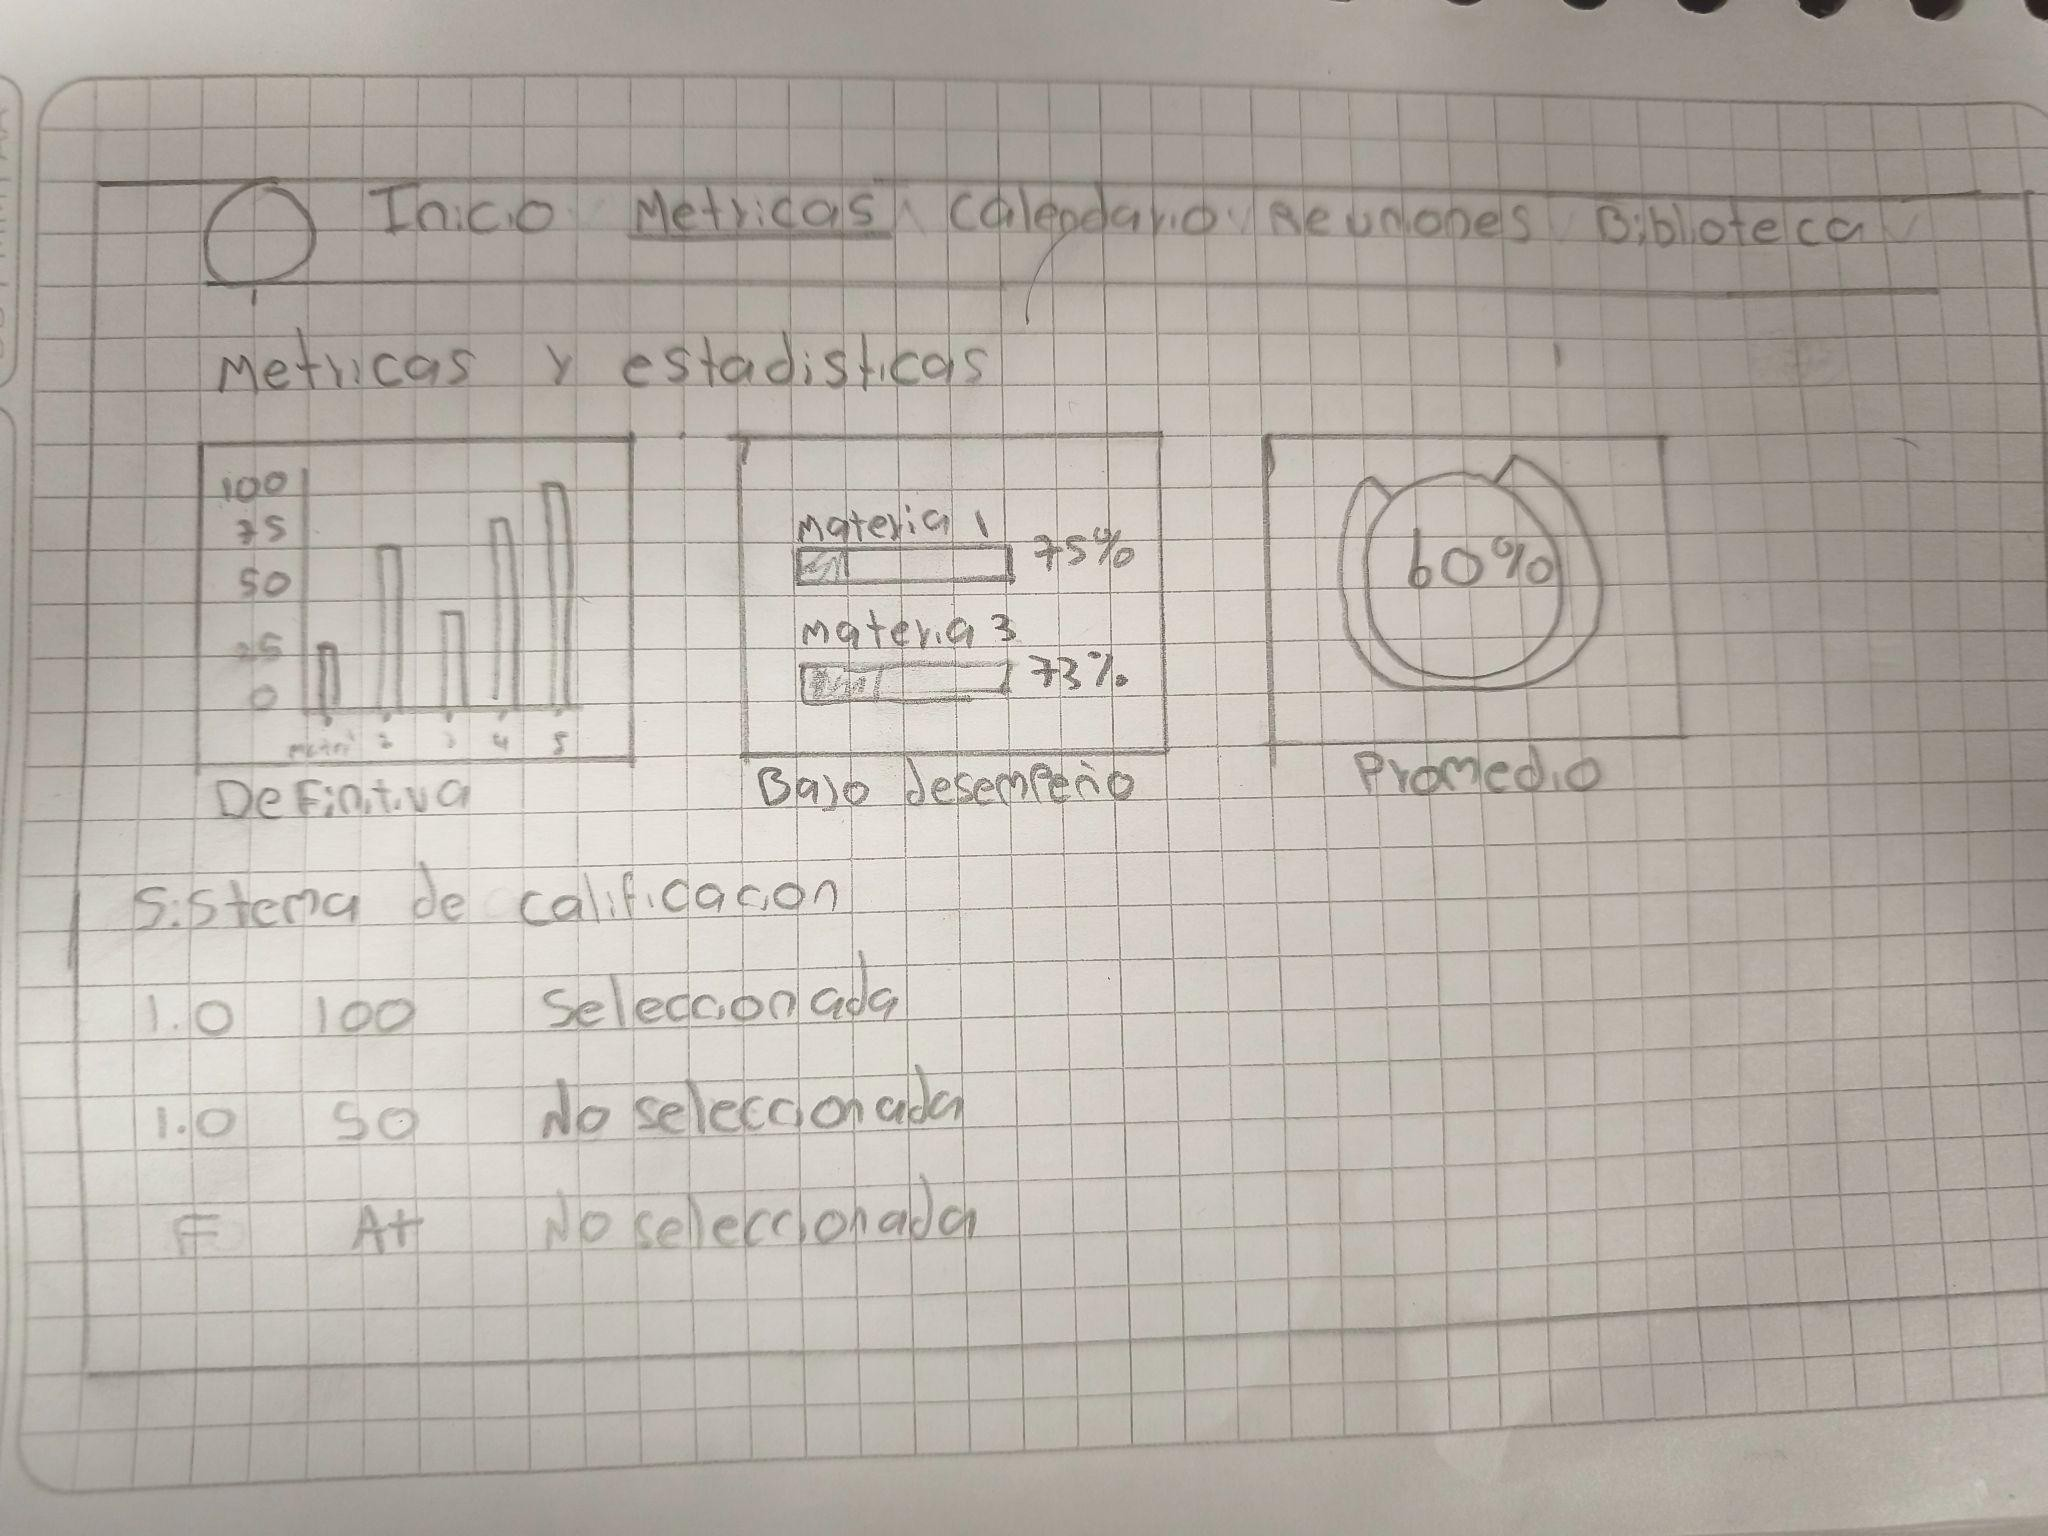 Inicio Metricas Calendario Reuniones Biblioteca
Metricas y estadisticas
100
75
50
25
0
2 3 4 5
Definitiva
Materia 1
75%
Materia 3
73%
Bajo desempeño
60%
Promedio
Sistema de calificacion
1.0 100 Seleccionada
1.0 50 No seleccionada
F A+ No seleccionada